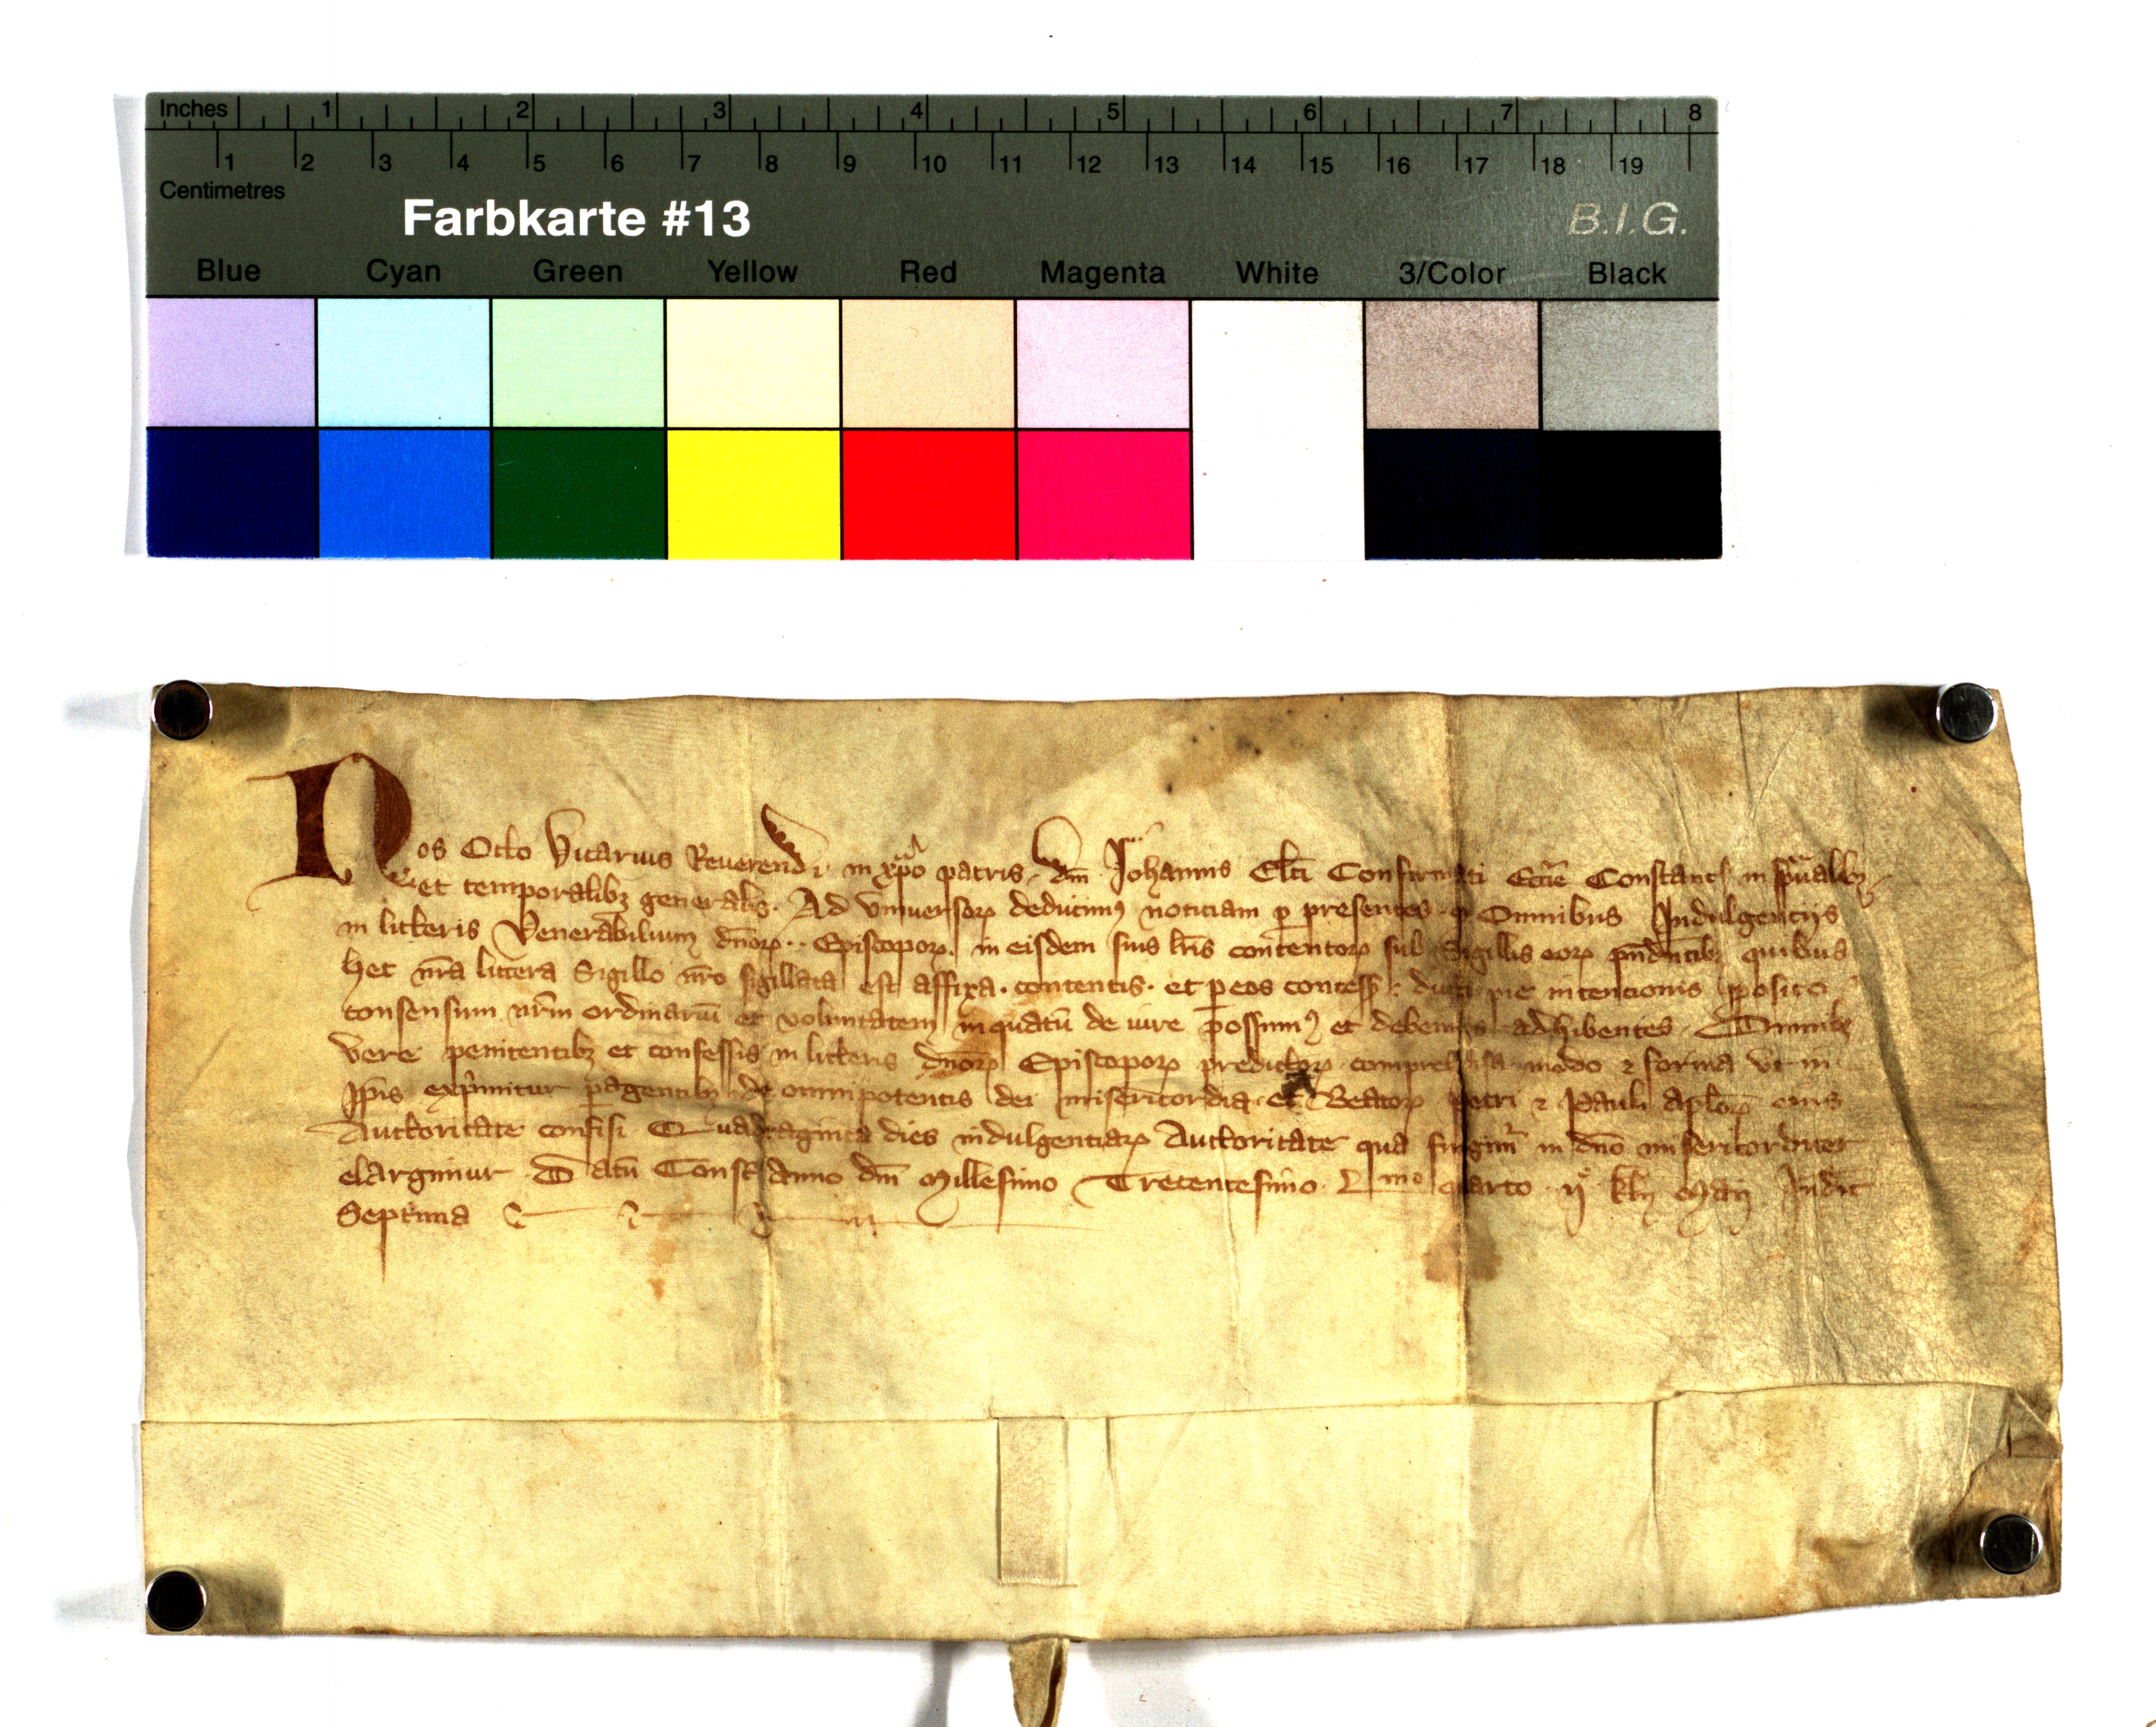 Inches 1 2 3 4 5 6 7 8
1 2 3 4 5 6 7 8 9 10 11 12 13 14 15 16 17 18 19
Centimetres
Farbkarte #13
B.I.G.
Blue Cyan Green Yellow Red Magenta White 3/Color Black
Nos Otto Vicarius Reuerendi in xpo patris dni Johannis Elti Confirmati Eccie Constant in spualibꝫ
et temporalibꝫ generalis. Ad vniuersoꝝ deducimꝰ noticiam ꝑ presentes ꝙ Omnibus Indulgentijs
in litteris Venerabilium dnoꝝ ·· Episcopoꝝ. in eisdem suis lris contentoꝝ sub Sigillis eoꝝ quibus
hec nra littera Sigillo nro sigillata est affixa. contentis. et ꝑ eos concess pie intencionis
consensum nrm ordinariu et voluntatem inquātū de iure possumꝰ et debemus adhibentes Omnibꝫ
vere penitentibꝫ et confessis in litteris dnoꝝ Episcopoꝝ predictoꝝ modo ⁊ forma vt in
ipis exprimitur ꝑagentibꝫ de omnipotentis dei misericordia et Beatoꝝ Petri ⁊ Pauli aploꝝ eius
Auctoritate confisi Quadraginta dies indulgentiaꝝ Auctoritate qua fungimr in dno misericorditer
elargimur Datū Const Anno dni Millesimo Trecentesimo Lmo quarto ij kln Maij Indic
Septima